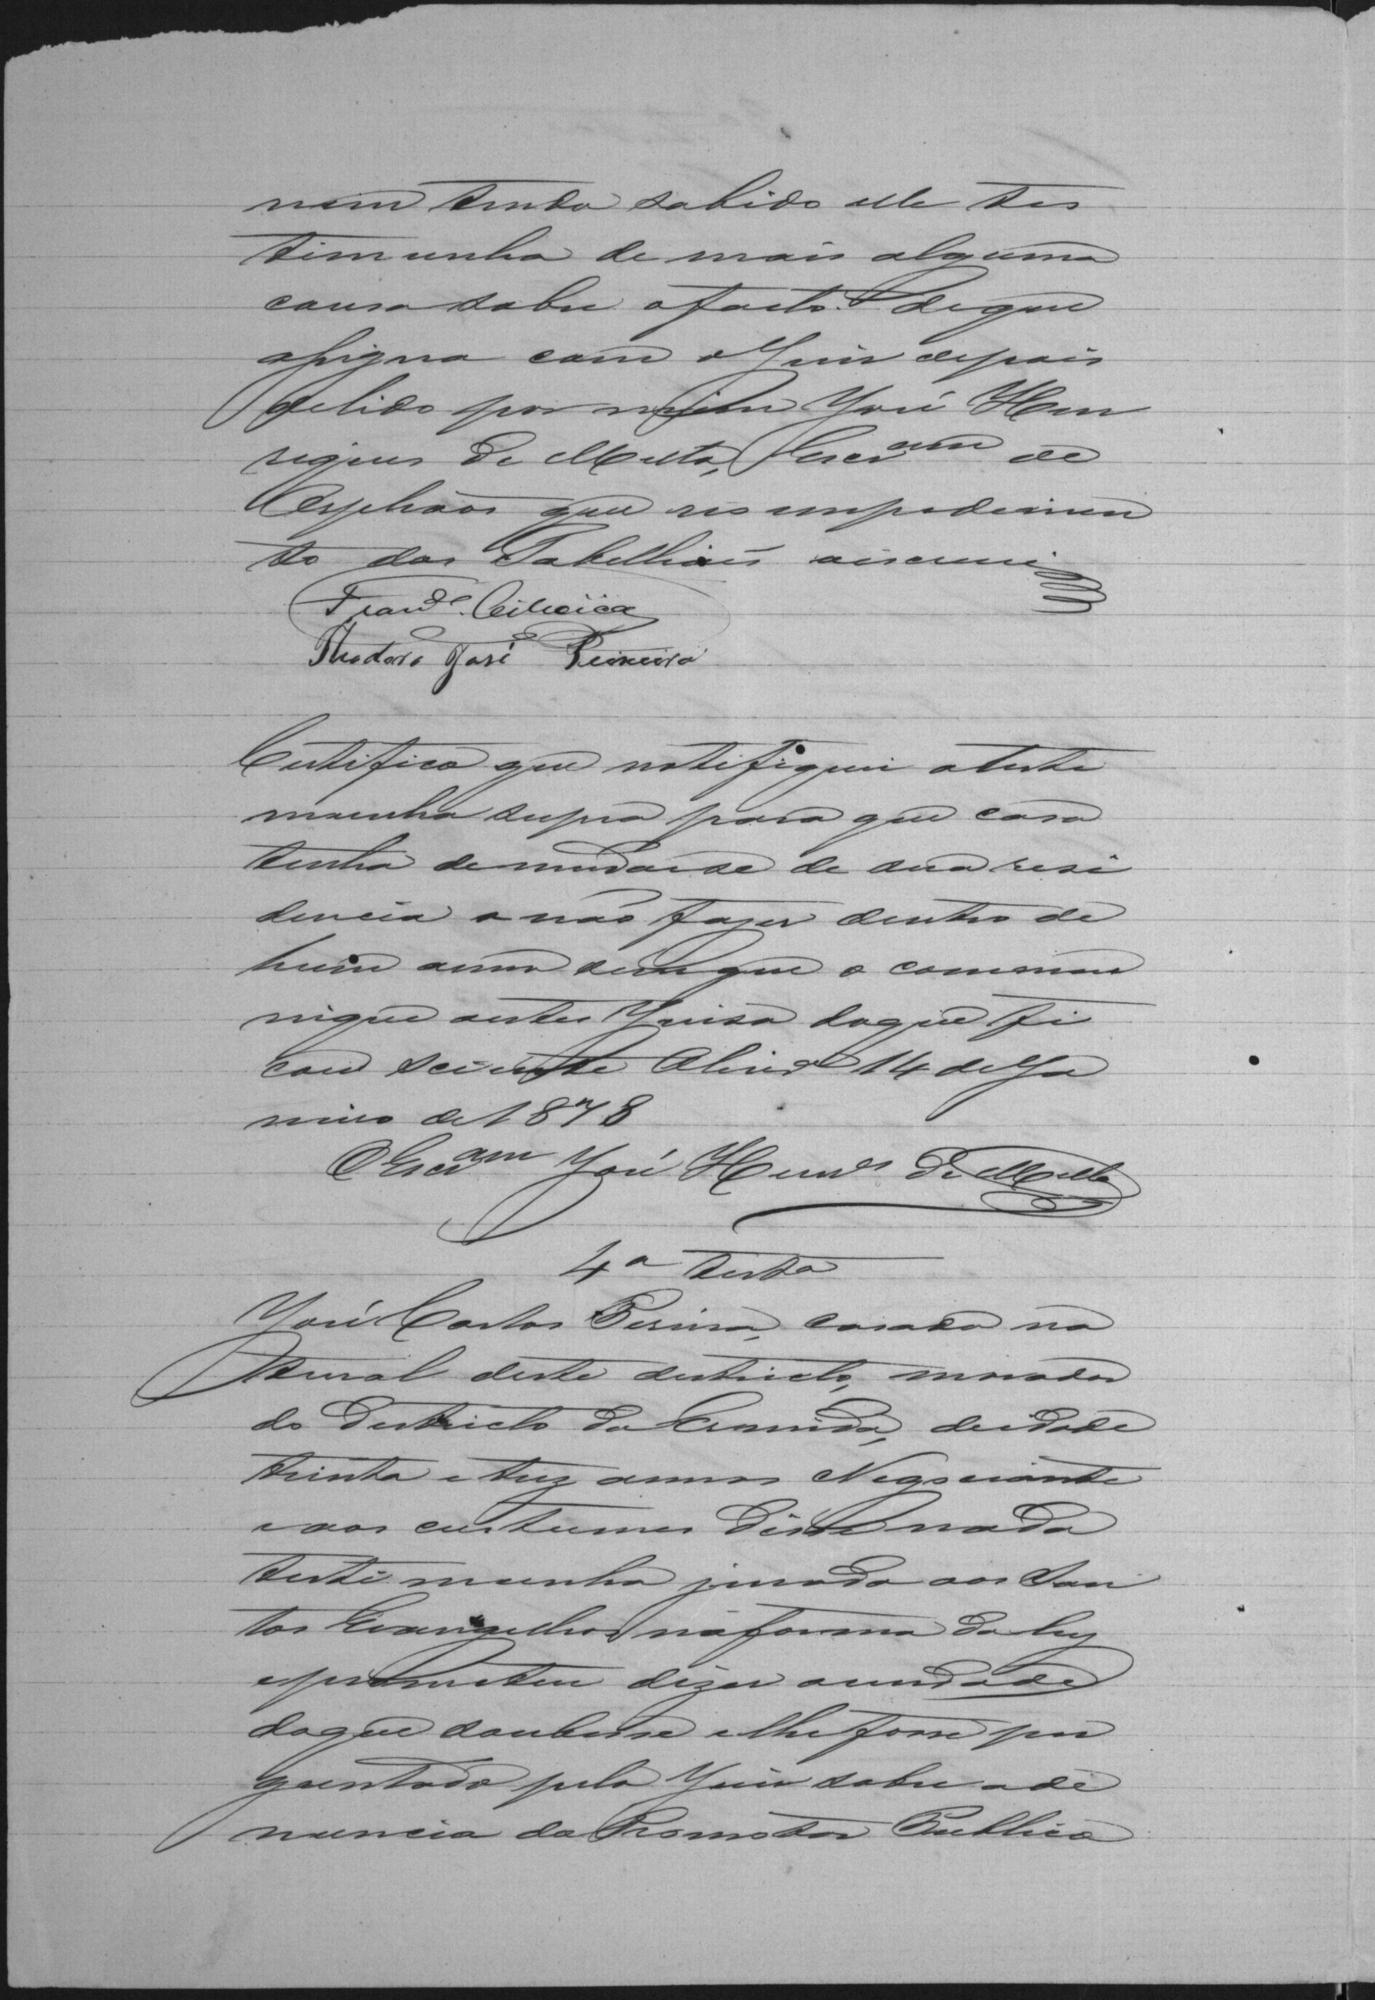 nem tendo sabido elle tes
timunha de mais alguma
cousa sobre o facto. De que
assigna com o Juis depois
de lido por mim José Hen
riques de Mello, Escr.am de
Orphãos que no impedimen
to dos Tabelliães o iscrevi
Theodoro José Teixeira
Certifico que notifiquei a teste
munha supra para que caso
tenha de mudarse de sua resi
dencia o não faser dentro de
hum anno sem que o commu
nique a este Juiso do que fi
cou sciente 14 de Ja
neiro de 1878
O Escr.am José Henr.s de Mello
4a testa
José Carlos Pereira, casado na
tural deste destricto, morador
do Destricto da Ermida, de idade
trinta e trez annos Negociante
e aos custumes disse nada
testemunha jurada aos San
tos Evangelhos na forma da ley
e prometeu dizer a verdade
do que soubesse e lhe fosse per
guntado pelo Juis sobre a de
nuncia do Promotor Publico